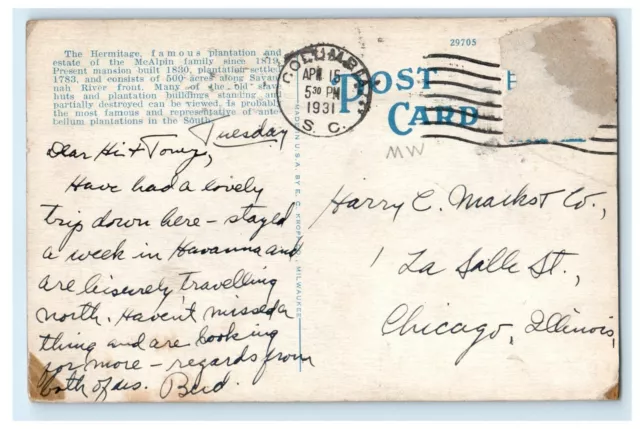 The Hermitage, famous plantation and
estate of the McAlpin family since 1819.
Present mansion built 1830, plantation settled
1783, and consists of 500 acres along Savan-
nah River front. Many of the old slave
huts and plantation buildings standing and
partially destroyed can be viewed. Is probably
the most famous and representative of ante
bellum plantations in the South.
Tuesday
Dear Hi + Tony,
Have had a lovely
trip down here – stayed
a week in Havanna and
are leisurely travelling
north. Haven't missed a
thing and are looking
for more – regards from
both of us. Bud.
MADE IN U.S.A. BY E. C. KROPP CO., MILWAUKEE
COLUMBIA
APR 15
5 30 PM
1931
S. C.
29705
POST
CARD
MW
Harry C. Mackst Co.,
1 La Salle St.,
Chicago, Illinois,